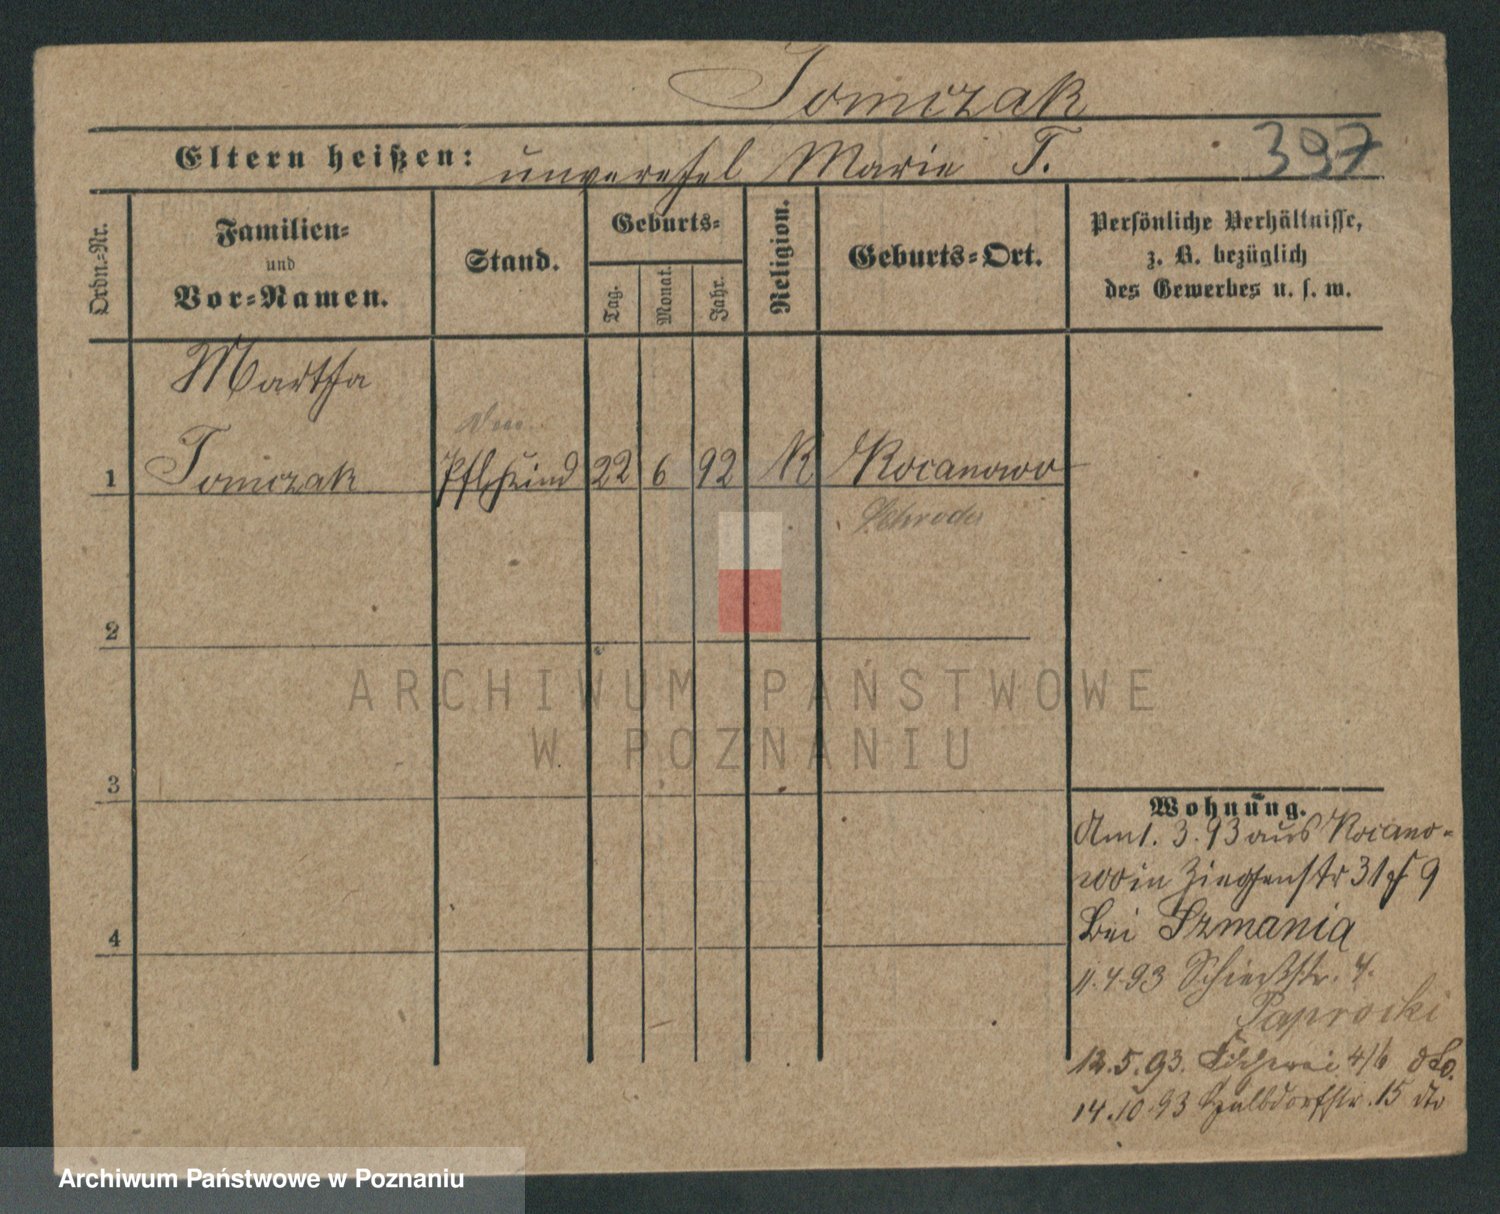 Tomczak
Eltern heißen: unverehel Marie T. 397
Ordn.-Nr.
Familien-
und
Vor-Namen.
Stand.
Geburts-
Tag.
Monat.
Jahr.
Religion.
Geburts-Ort.
Persönliche Verhältnisse,
z. B. bezüglich
des Gewerbes u. s. w.
Martha
1 Tomczak Pflgkind 22 6 92 K Kocanowo
Schroda
2
ARCHIWUM PAŃSTWOWE
W POZNANIU
3
Wohnung.
Am 1. 3. 93 aus Kocano-
wo in Ziegenstr 31 9
bei Szmania
11.4.93 Schießstr. 4.
Paprocki
12.5.93. Fischerei 4/6 dto.
14.10.93 Halbdorfstr. 15 dto
4
Archiwum Państwowe w Poznaniu